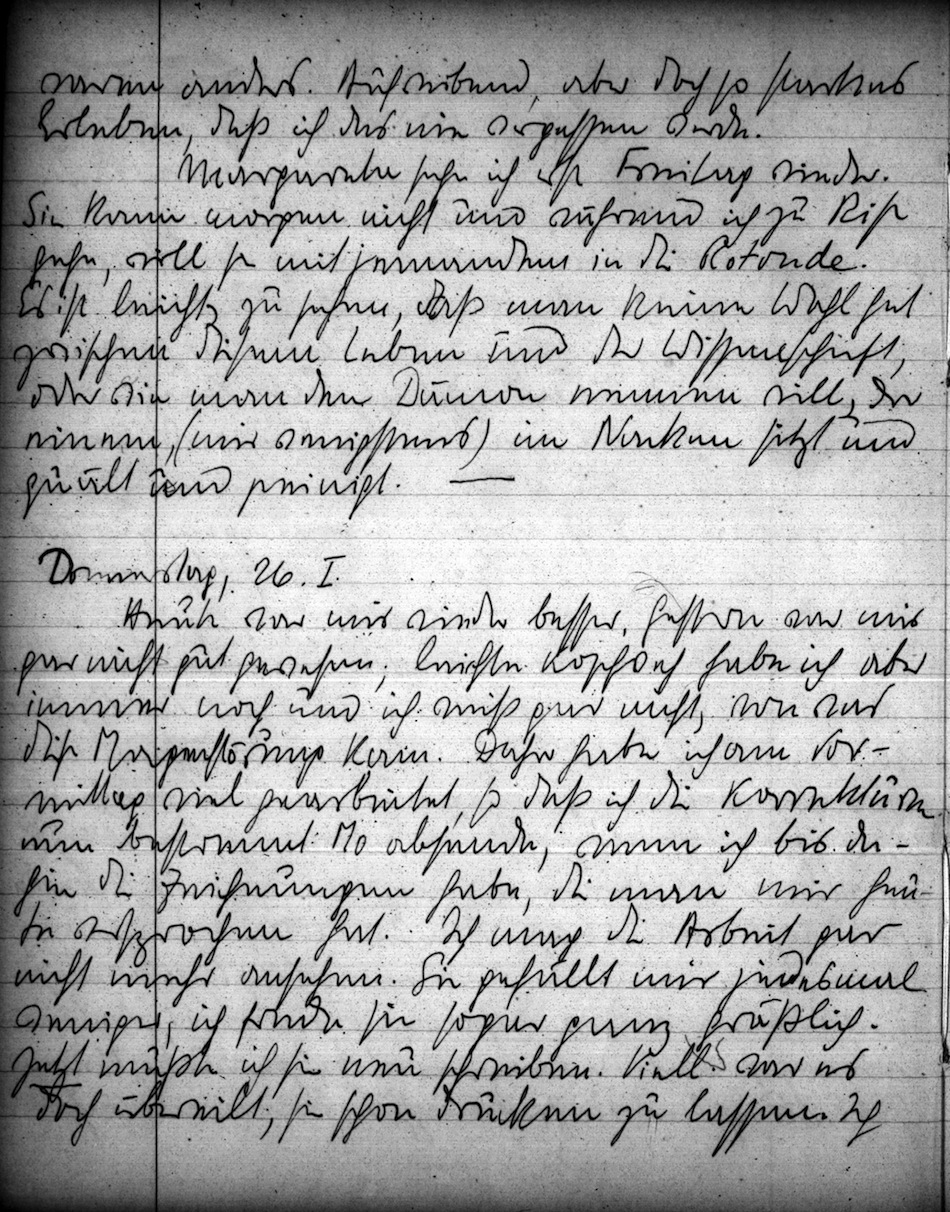 waren anders. Aufreibend, aber doch so starkes
Erleben, daß ich das nie vergessen werde.
Margarete sehe ich erst Freitag wieder.
Sie kann morgen nicht und während ich zu
gehe, will sie mit jemandem in die Rotonde.
Es ist leicht zu sehen, daß man keine Wahl hat
zwischen diesem Leben und der Wissenschaft,
oder wie man den Dämon nennen will, der
einem, (mir wenigstens) im Nacken sitzt und
quält und peinigt. —
Donnerstag, 26. I.
Heute war mir wieder besser. Gestern war mir
gar nicht gut gewesen; leichte Kopfweh habe ich aber
immer noch und ich weiß gar nicht, von was
diese Magenstörung kam. Daher habe ich am Vor-
mittag viel gearbeitet, so daß ich die Korrekturen
nun bestimmt Mo absende, wenn ich bis da-
hin die Zeichnungen habe, die man mir heu-
te versprochen hat. Ich mag die Arbeit gar
nicht mehr ansehen. Sie gefällt mir jedesmal
weniger, ich finde sie sogar ganz gräßlich.
Jetzt müßte ich sie neu schreiben. Viell. war es
doch übereilt, sie schon drucken zu lassen. Ich